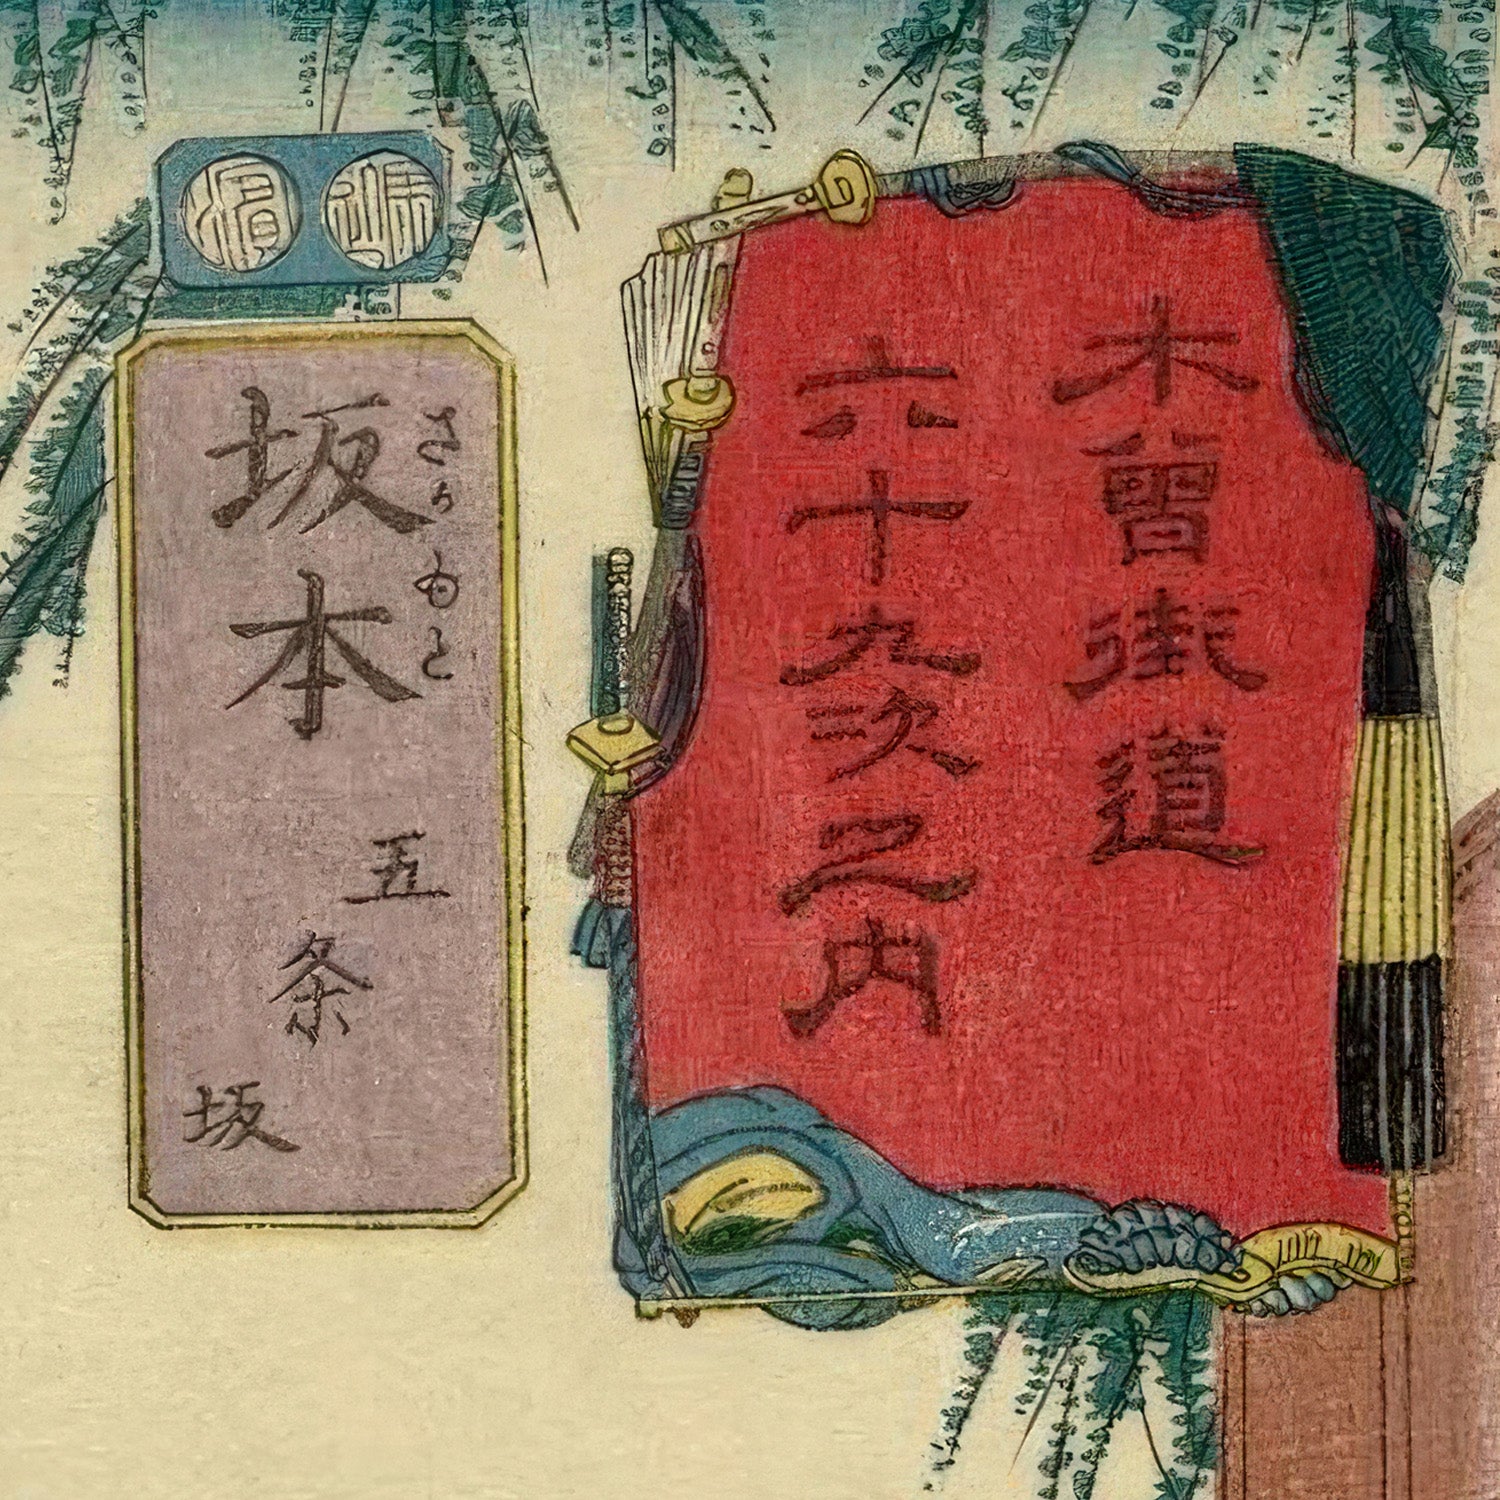 木曾街道
六十九次之内
坂本
さかもと
五条
坂
濵
衛